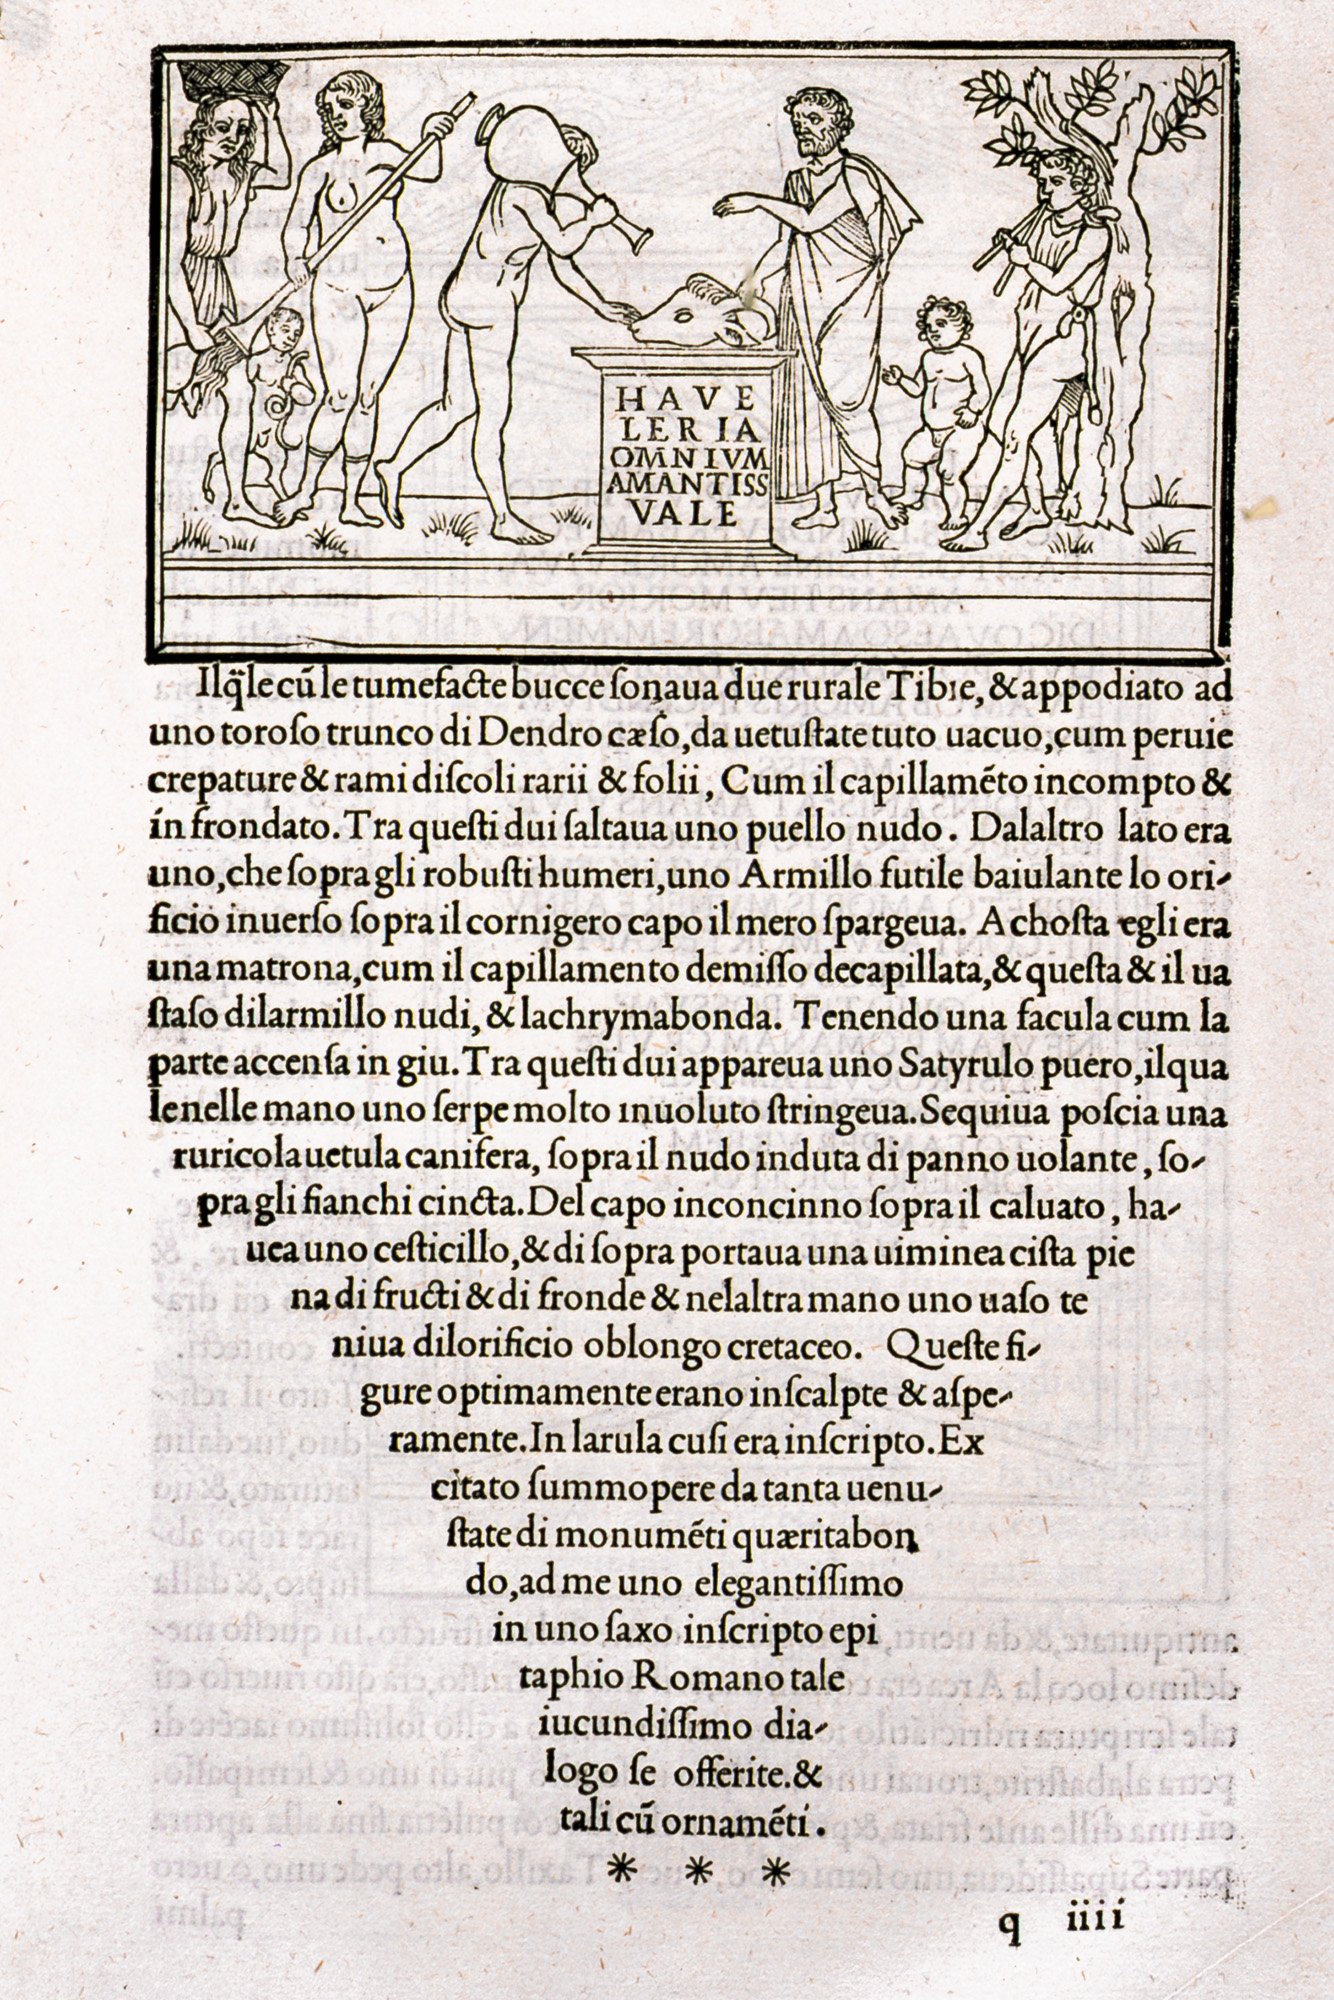 HAVE
LERIA
OMNIVM
AMANTISS
VALE
Ilq̃le cū le tumefacte bucce ſonaua due rurale Tibie, & appodiato ad
uno toroſo trunco di Dendro cæſo, da uetuſtate tuto uacuo, cum peruie
crepature & rami diſcoli rarii & folii, Cum il capillamẽto incompto &
in frondato. Tra queſti dui ſaltaua uno puello nudo. Dalaltro lato era
uno, che ſopra gli robuſti humeri, uno Armillo futile baiulante lo ori-
ficio inuerſo ſopra il cornigero capo il mero ſpargeua. Achoſta egli era
una matrona, cum il capillamento demiſſo decapillata, & queſta & il ua
ſtaſo dilarmillo nudi, & lachrymabonda. Tenendo una facula cum la
parte accenſa in giu. Tra queſti dui appareua uno Satyrulo puero, ilqua
le nelle mano uno ſerpe molto inuoluto ſtringeua. Sequiua poſcia una
ruricola uetula canifera, ſopra il nudo induta di panno uolante, ſo-
pra gli fianchi cincta. Del capo inconcinno ſopra il caluato, ha-
uea uno ceſticillo, & di ſopra portaua una uiminea ciſta pie
na di fructi & di fronde & nelaltra mano uno uaſo te
niua dilorificio oblongo cretaceo. Queſte fi-
gure optimamente erano inſcalpte & aſpe-
ramente. In larula cuſi era inſcripto. Ex
citato ſummopere da tanta uenu-
ſtate di monumẽti quæritabon
do, ad me uno elegantiſſimo
in uno ſaxo inſcripto epi
taphio Romano tale
iucundiſſimo dia-
logo ſe offerite. &
tali cū ornamẽti.
* * *
q iiii